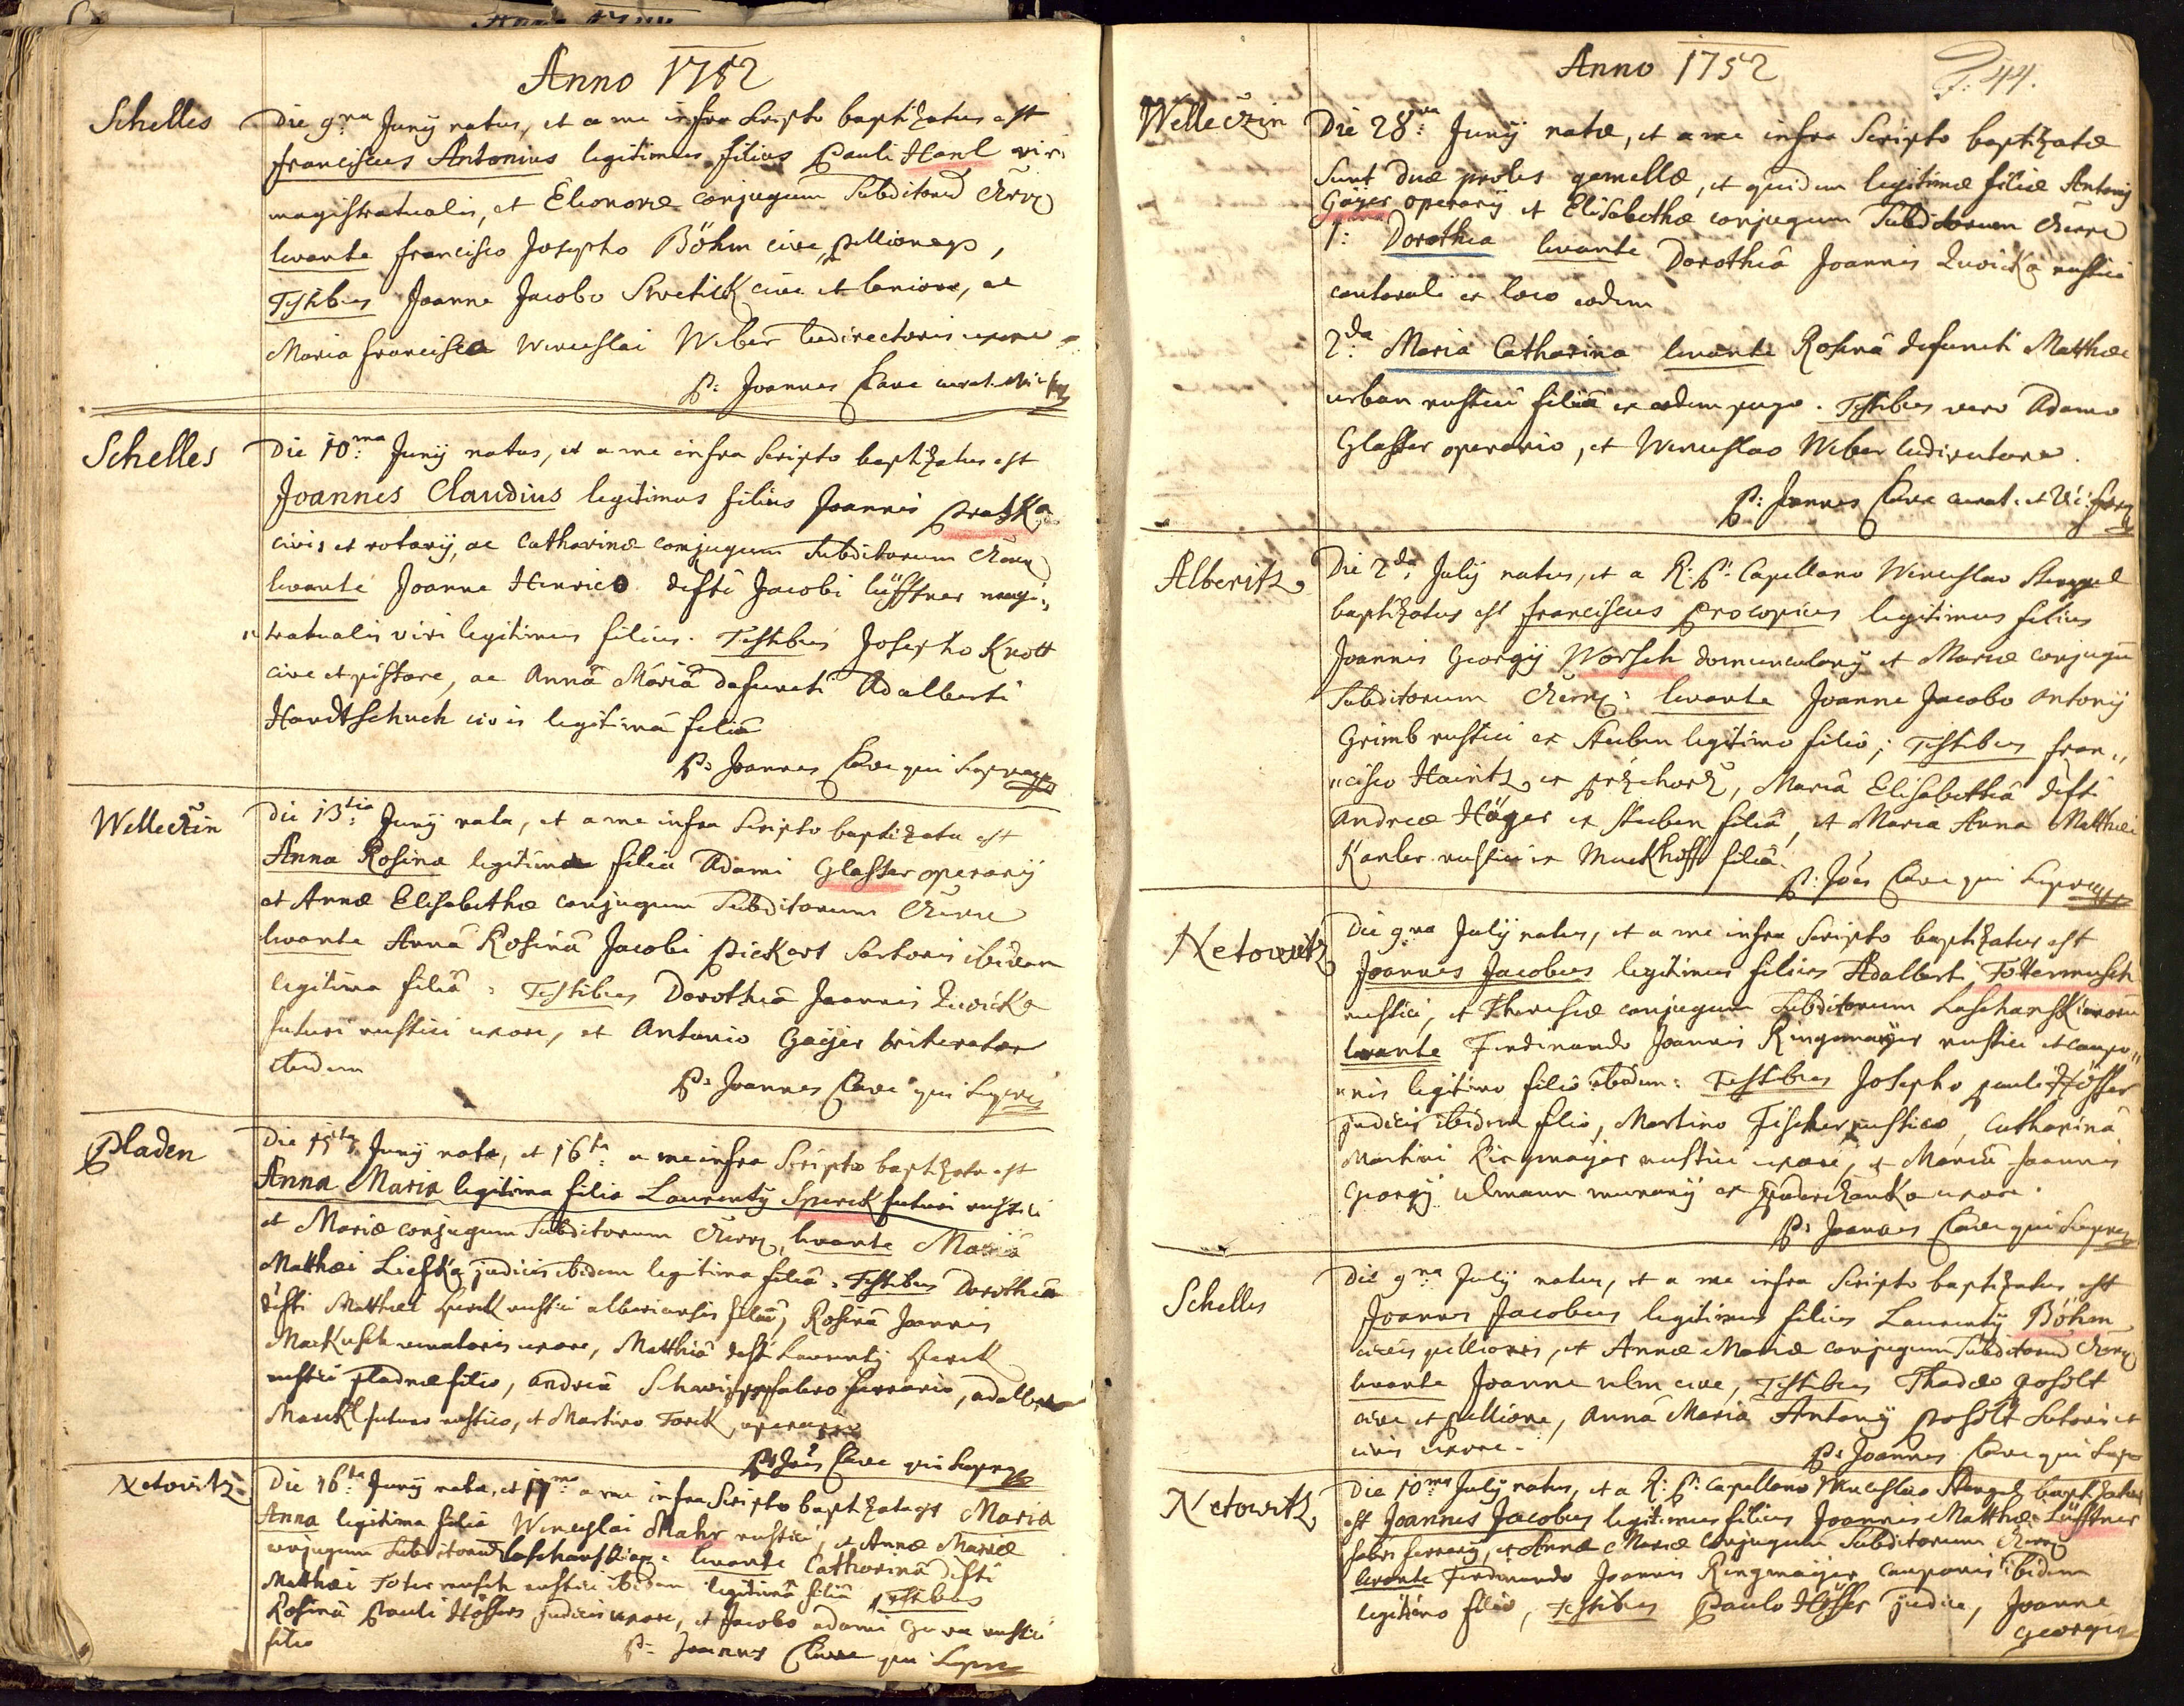 Anno 1752
Schelles
Die 9na Junÿ natus, et a me infra Scripto baptizatus est
Franciscus Antonius legitimus filius Pauli Hanl viri
magistratualis, et Eleonoræ conjugum Subditorum
levante Francisco Josepho Böhm cive, pellione
Testibus Joanne Jacobo Swetlick cive et lanione, ac
Maria Francisca Wenceslai Weber ludirectoris uxore
P: Joannes Clave curat.
Schelles
Die 10ma: Junÿ natus, et a me infra Scripto baptizatus est
Joannes Claudius legitimus filius Joannis Pratka
civis et rotarÿ, ac Catharinæ conjugum Subditorum
levante Joanne Henrico defti Jacobi Lüfftner magi„
„tratualis viri legitimus filius. Testibus Josepho Knott
cive et pistore, ac Annâ Mariâ defuncti Adalberti
Handtschuch civis legitimâ filiâ
P: Joannes Clave qui Supra
Welleczin
Die 13tia Junÿ nata, et a me infra Scripto baptizata est
Anna Rosina legitima filia Adami Glasser operarÿ
et Annæ Elisabethæ conjugum Subditorum
levante Annâ Rosinâ Jacobi Pickart Sartoris ibidem
legitima filiâ: Testibus Dorotheâ Joannis Zwicka
futuri rustici uxore, et Antonio Gaÿer tritoratore
ibidem
P: Joannes Clave qui Supra
Pladen
Die 15ta Junÿ nata, et 16ta: a me infra Scripto baptizata est
Anna Maria legitima filia Laurentÿ Sperck futuri rustici
et Mariæ conjugum Subditorum levante Mariâ
Matthæi Liefka judicis ibidem legitima filiâ: Testibus Dorotheâ
defti Matthæi rustici filiâ, Rosinâ Joannis
Markusch uxore, Matthiâ deft Laurentÿ
rustici Pladnæ filio, Andreâ fabro ferrario, Adalberto
Manckl futuro rustico, et Martino Torck operario
P: Joês Clave qui Supra
Netowitz
Die 16ta Junÿ nata, et 17ma a me infra Scripto baptizata est Maria
Anna legitima filia Wenceslai Mahr rustici, et Annæ Mariæ
conjugum Subditorum levante Catharinâ defti
Matthæi Totermusch rustici ibidem legitimâ filiâ Testibus
Rosinâ Pauli Hösser judicis uxore, et Jacobo Adami rustici
filio
P: Joannes Clave qui Supra
Anno 1752
F: 44.
Welleczin
Die 28va: Junÿ natæ, et a me infra Scripto baptizatæ
Sunt duæ proles gemellæ, et quidem legitimæ filiæ Antonÿ
Gaÿer operarÿ et Elisabethæ conjugum Subditorum
1: Dorothea levante Dorotheâ Joannis Zwicka rustici
ex loco eodem
2da: Maria Catharina levante Rosinâ defuncti Matthæi
Urban rustici filiâ ex eodem pago. Testibus vero Adamo
Glasser operario, et Wenceslao Weber ludirectore.
P: Joannes Clave curat.
Alberitz
Die 2da: Julÿ natus, et a R: P: Capellano Wenceslao Stengel
baptizatus est Franciscus Procopius legitimus filius
Joannis Georgÿ Worsch domuncularÿ et Mariæ conjugum
Subditorum levante Joanne Jacobo Antonÿ
Grimb rustici ex Stuben legitimo filiô; Testibus Fran„
„cisco Haintz ex, Mariâ Elisabethâ defti
Andreæ Häger ex Stuben filiâ, et Maria Anna Matthæi
Kanler rustici ex Muckhoff filiâ.
P: Joês Clave qui Supra
Netowitz
Die 9na Julÿ natus, et a me infra Scripto baptizatus est
Joannes Jacobus legitimus filius Adalberti Tottermusch
rustici, et Theresiæ conjugum Subditorum
levante Ferdinando Joannis Ringmaÿer rustici et caupo„
„nis legitimo filiô ibidem: Testibus Josepho Pauli Hösser
judicis ibidem filio, Martino Fischer rustico, Catharinâ
Martini Ringmaÿer rustici uxore, et Mariâ Joannis
Georgÿ Ulmann murarÿ ex uxore.
P: Joannes Clave qui Supra
Schelles
Die 9na Julÿ natus, et a me infra Scripto baptizatus est
Joannes Jacobus legitimus filius Laurentÿ Böhm
civis pellionis, et Annæ Mariæ conjugum Subditorum
levante Joanne Ulm cive, Testibus Thadæo Posolt
cive et pellione, Annâ Mariâ Antonÿ Posolt Sutoris et
civis uxore.
P: Joannes Clave qui Supra
Netowitz
Die 10ma Julÿ natus, et a R: P: Capellano Wenceslao Stengel baptizatus
est Joannes Jacobus legitimus filius Joannis Matthæi Lüfftner
fabri ferrarÿ, et Annæ Mariæ conjugum Subditorum
levante Ferdinando Joannis Ringmaÿer cauponis ibidem
legitimo filiô, Testibus Paulo Hösser judice, Joanne
Georgio